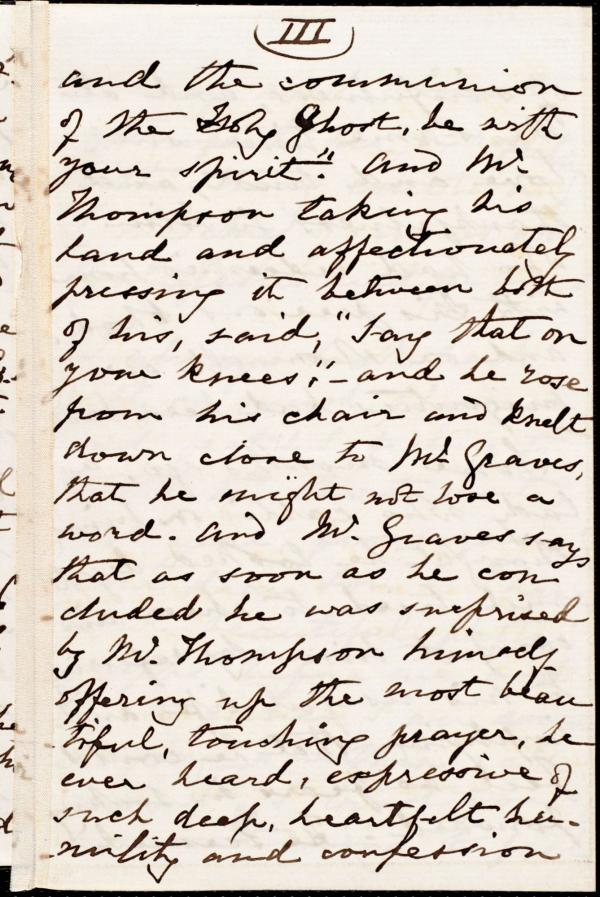 III
and the communion
of the Holy Ghost, be with
your spirit." And Mr.
Thompson taking his
hand and affectionately
pressing it between both
of his, said, "Say that on
your knees", - and he rose
from his chair and knelt
down close to Mr. Graves,
that he might not lose a
word. And Mr. Graves says
that as soon as he con
cluded he was surprised
by Mr. Thompson himself
offering up the most beau
tiful, touching prayer, he
ever heard, expressive of
such deep, heartfelt hu-
mility and confession